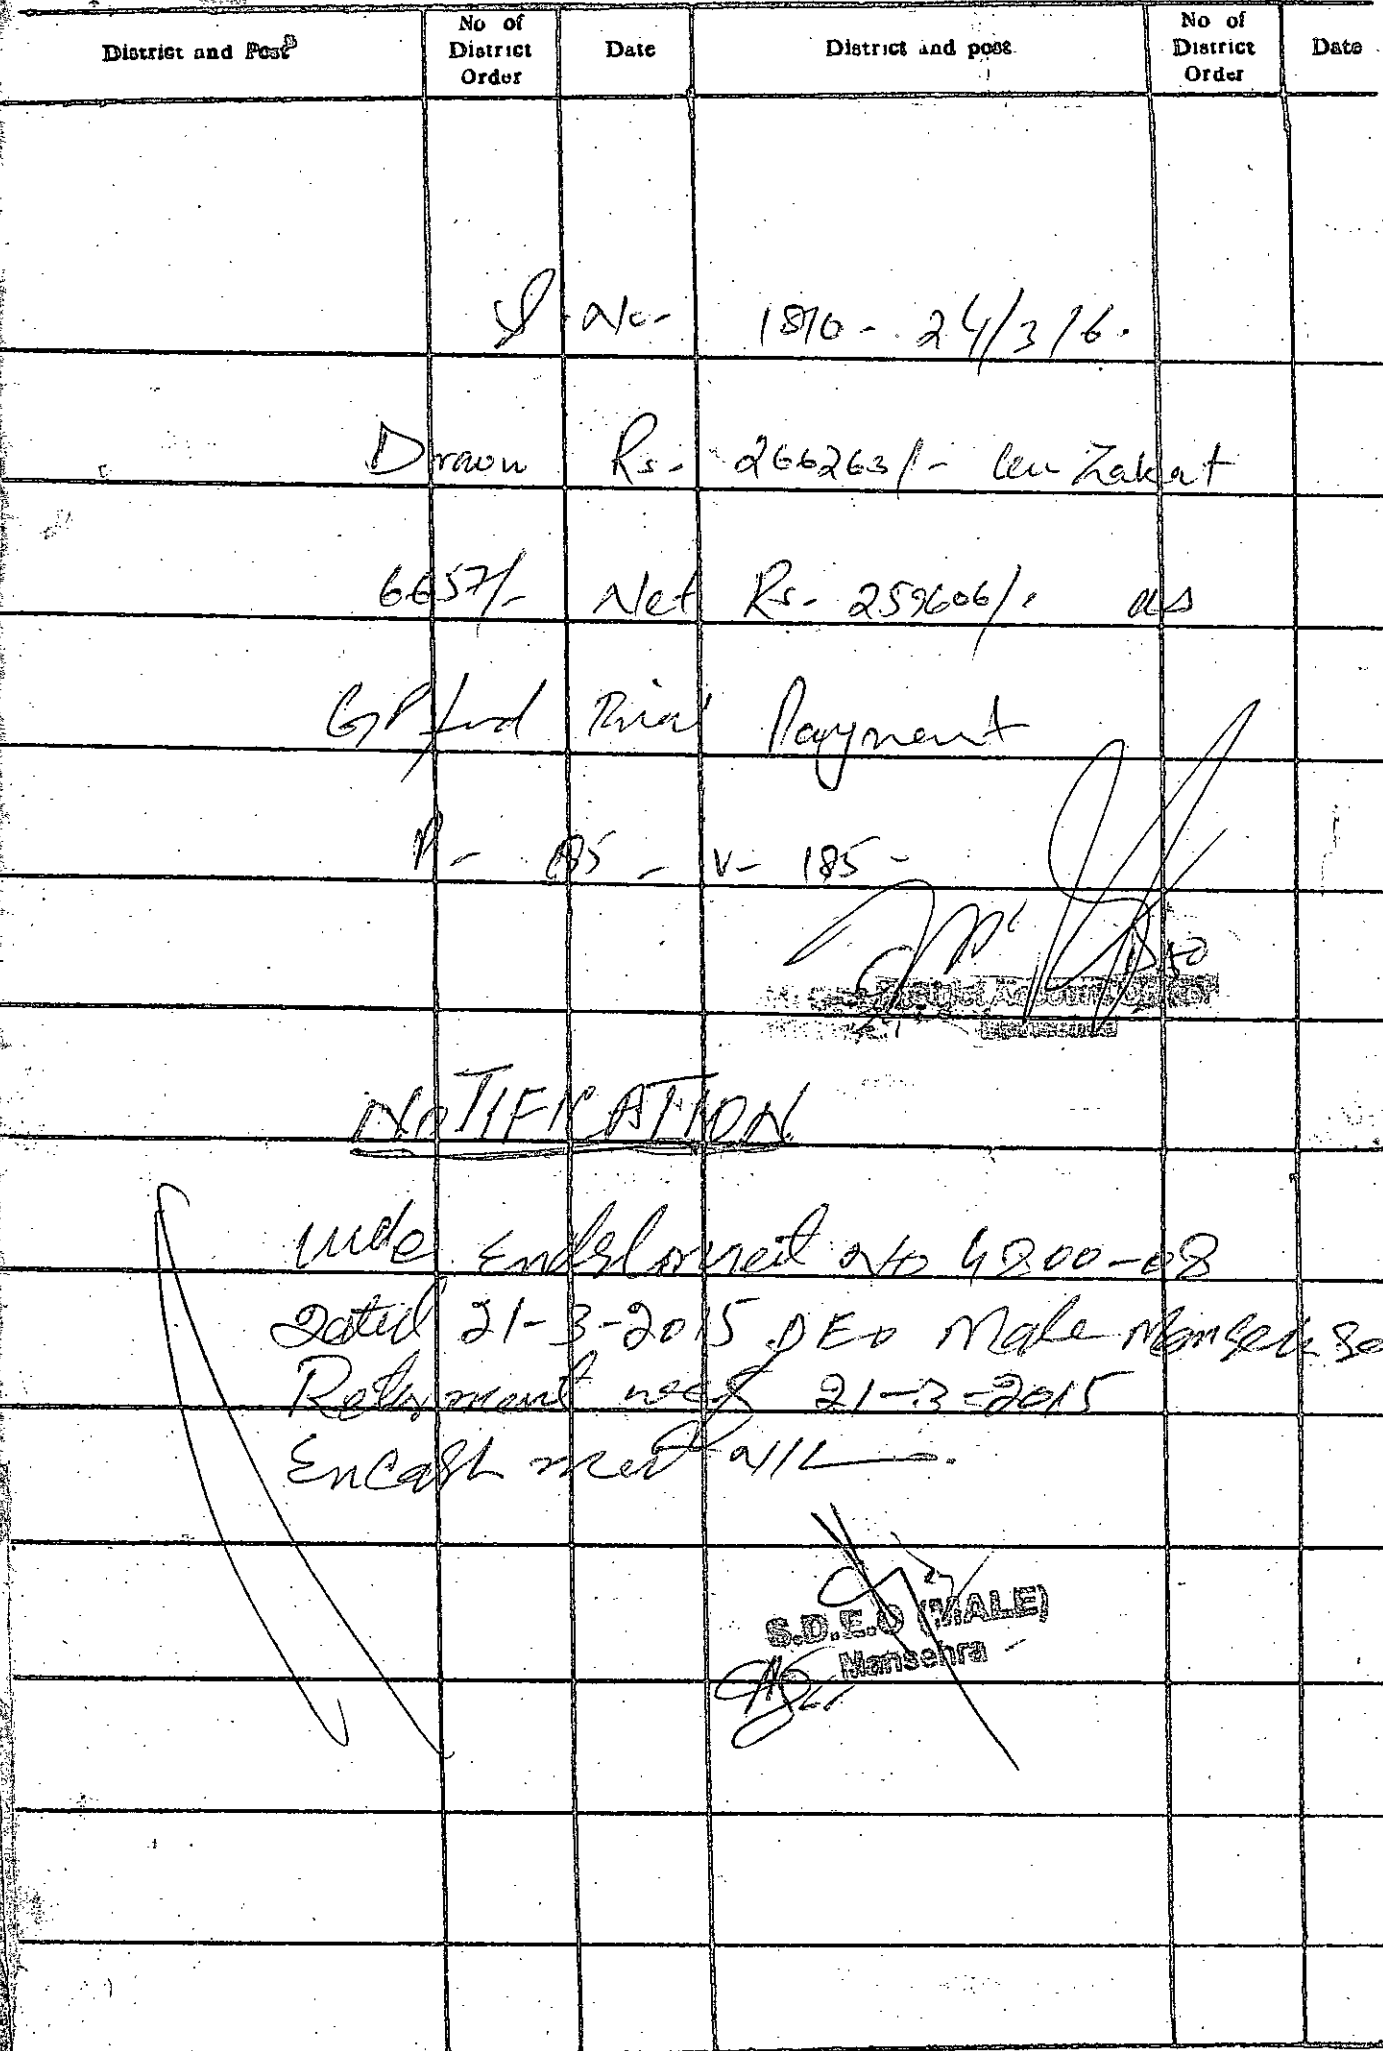 District and Post No of District Order Date District and post No of District Order Date
S. No- 1810- 24/3/16.
Drawn Rs- 266263/- less Zakat
6657/- Net Rs- 259606/- as
GP fund Final Payment
P- 185 - V- 185-
DAO
District Accounts Officer
Mansehra
NOTIFICATION
vide Endslorment No 4800-08
Dated 21-3-2015 DEO Male Mansehra
Retirment wef 21-3-2015
Encashment NIL
S.D.E.O (MALE)
Mansehra